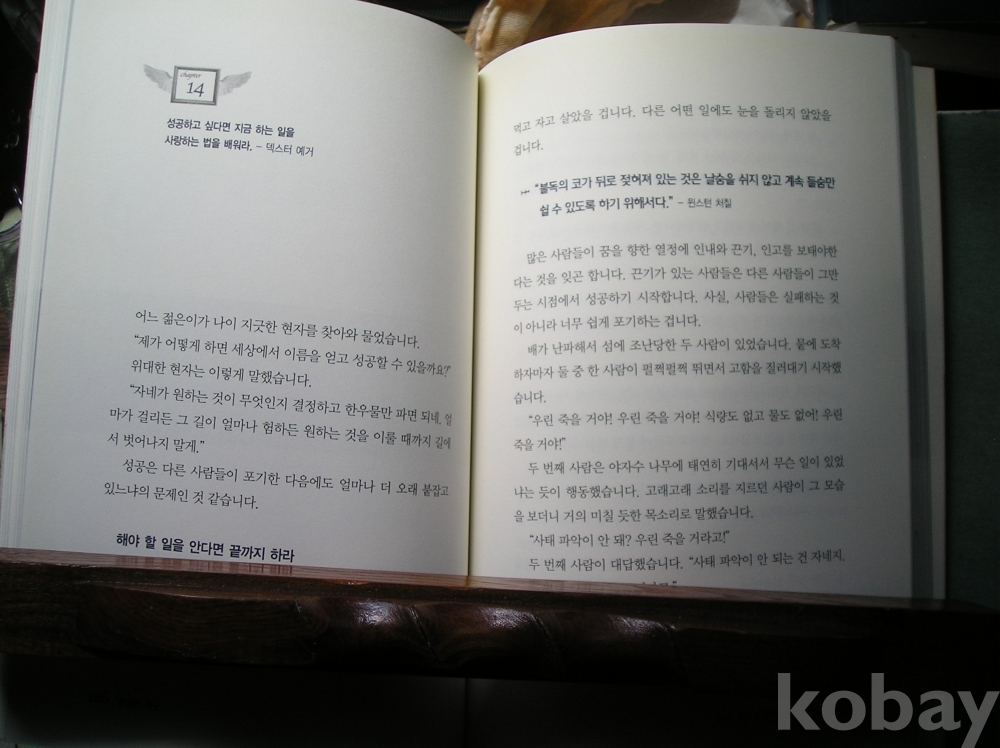 chapter
14
성공하고 싶다면 지금 하는 일을
사랑하는 법을 배워라. – 덱스터 예거
어느 젊은이가 나이 지긋한 현자를 찾아와 물었습니다.
“제가 어떻게 하면 세상에서 이름을 얻고 성공할 수 있을까요?”
위대한 현자는 이렇게 말했습니다.
“자네가 원하는 것이 무엇인지 결정하고 한우물만 파면 되네. 얼
마가 걸리든 그 길이 얼마나 험하든 원하는 것을 이룰 때까지 길에
서 벗어나지 말게.”
성공은 다른 사람들이 포기한 다음에도 얼마나 더 오래 붙잡고
있느냐의 문제인 것 같습니다.
해야 할 일을 안다면 끝까지 하라
먹고 자고 살았을 겁니다. 다른 어떤 일에도 눈을 돌리지 않았을
겁니다.
“불독의 코가 뒤로 젖혀져 있는 것은 날숨을 쉬지 않고 계속 들숨만
쉴 수 있도록 하기 위해서다.” – 윈스턴 처칠
많은 사람들이 꿈을 향한 열정에 인내와 끈기, 인고를 보태야한
다는 것을 잊곤 합니다. 끈기가 있는 사람들은 다른 사람들이 그만
두는 시점에서 성공하기 시작합니다. 사실, 사람들은 실패하는 것
이 아니라 너무 쉽게 포기하는 겁니다.
배가 난파해서 섬에 조난당한 두 사람이 있었습니다. 뭍에 도착
하자마자 둘 중 한 사람이 펄쩍펄쩍 뛰면서 고함을 질러대기 시작했
습니다.
“우린 죽을 거야! 우린 죽을 거야! 식량도 없고 물도 없어! 우린
죽을 거야!”
두 번째 사람은 야자수 나무에 태연히 기대서서 무슨 일이 있었
냐는 듯이 행동했습니다. 고래고래 소리를 지르던 사람이 그 모습
을 보더니 거의 미칠 듯한 목소리로 말했습니다.
“사태 파악이 안 돼? 우린 죽을 거라고!”
두 번째 사람이 대답했습니다. “사태 파악이 안 되는 건 자네지.
kobay